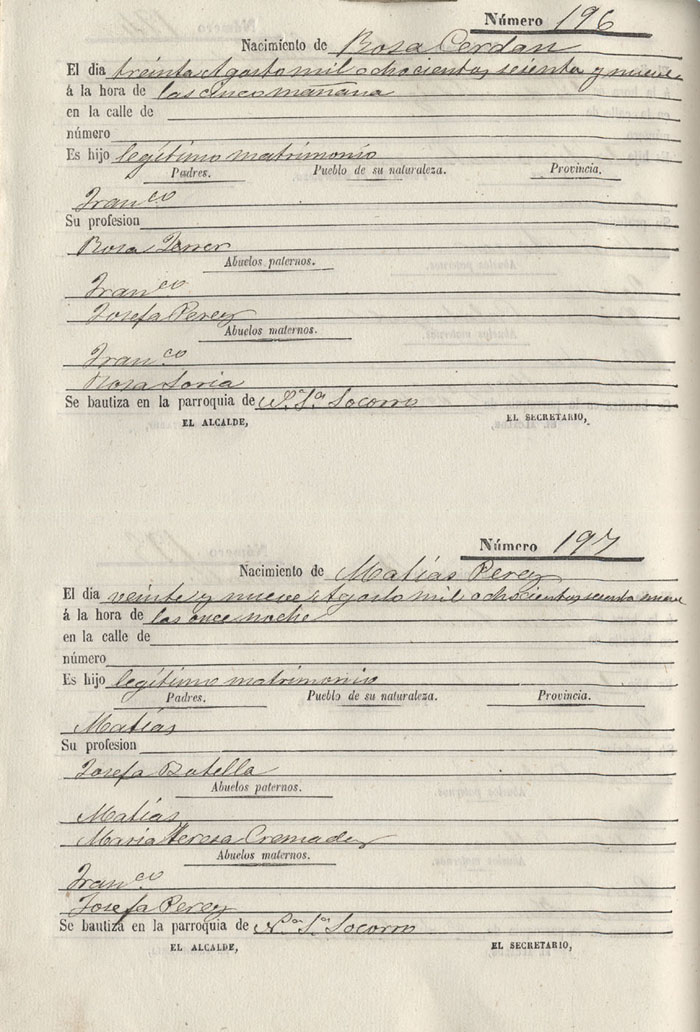 Número 196
Nacimiento de Rosa Cerdan
El dia treinta Agosto mil ochocientos seienta y nueve
á la hora de las cinco mañana
en la calle de
número
Es hijo legítimo matrimonio
Padres. Pueblo de su naturaleza. Provincia.
Franco
Su profesion
Rosa Ferrer
Abuelos paternos.
Franco
Josefa Perez
Abuelos maternos.
Franco
Rosa Soria
Se bautiza en la parroquia de Na Sa Socorro
EL ALCALDE, EL SECRETARIO,
Número 197
Nacimiento de Matías Perez
El dia veinte y nueve Agosto mil ochocientos seienta nueve
á la hora de las once noche
en la calle de
número
Es hijo legítimo matrimonio
Padres. Pueblo de su naturaleza. Provincia.
Matías
Su profesion
Josefa Botella
Abuelos paternos.
Matías
Maria Teresa Cremades
Abuelos maternos.
Franco
Josefa Perez
Se bautiza en la parroquia de Na Sa Socorro
EL ALCALDE, EL SECRETARIO,